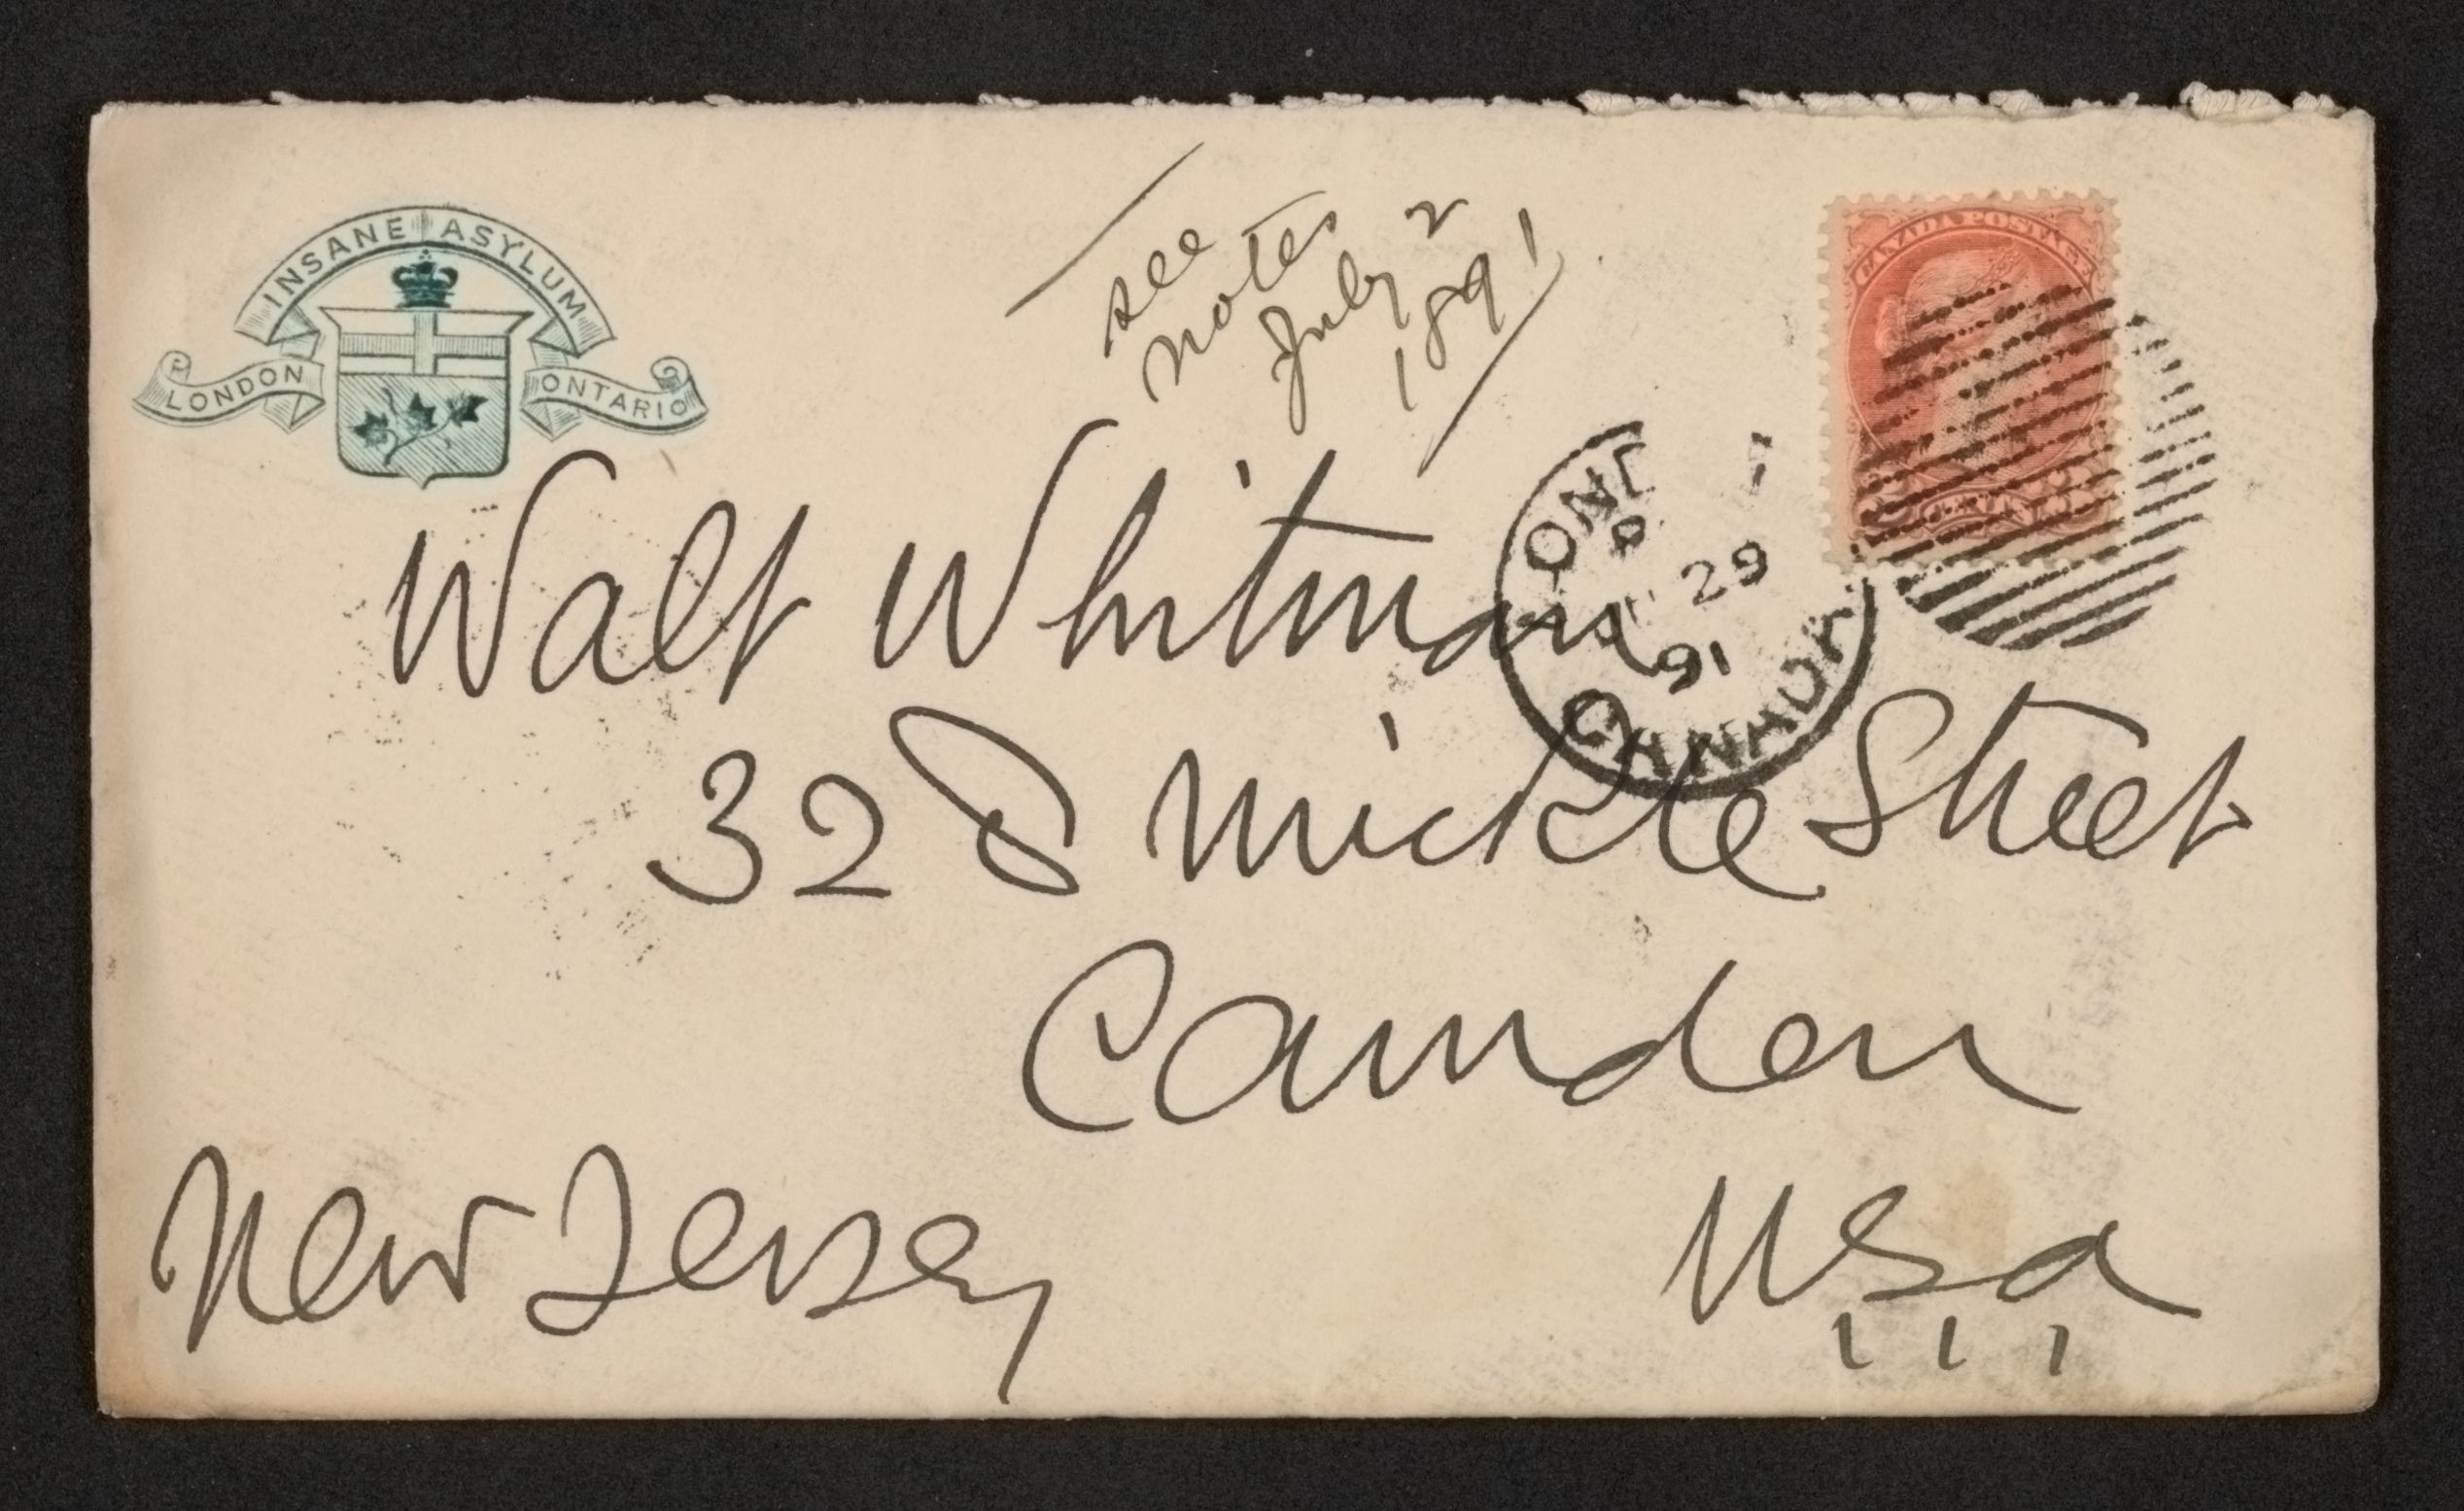 INSANE ASYLUM
LONDON ONTARIO
see
notes
July 2
1891
CANADA POSTAGE
LOND
P
29
91
CANADA
Walt Whitman
328 Mickle Street
Camden
New Jersey
USa